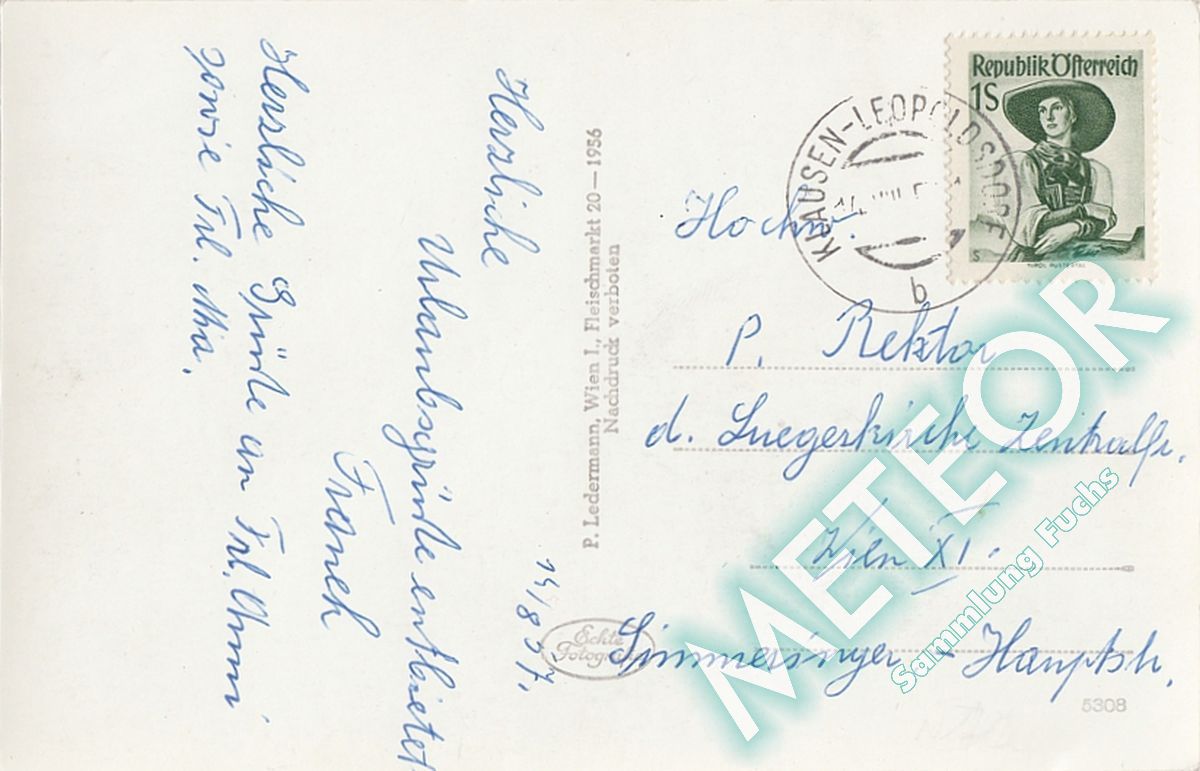 Herzliche
Urlaubsgrüße entbietet
Franek
14/8 57.
Herzliche Grüße an Frl. Anni
sowie Frl. Mia.
P. Ledermann, Wien I., Fleischmarkt 20—1956
Nachdruck verboten
Echte
Fotografie
Republik Österreich
1S
TIROL PUSTERTAL
KLAUSEN-LEOPOLDSDORF
b
Hochw.
P. Rektor
d. Luegerkirche Zentralfr.
Wien XI.
Simmeringer - Hauptstr.
5308
METEOR
Sammlung Fuchs